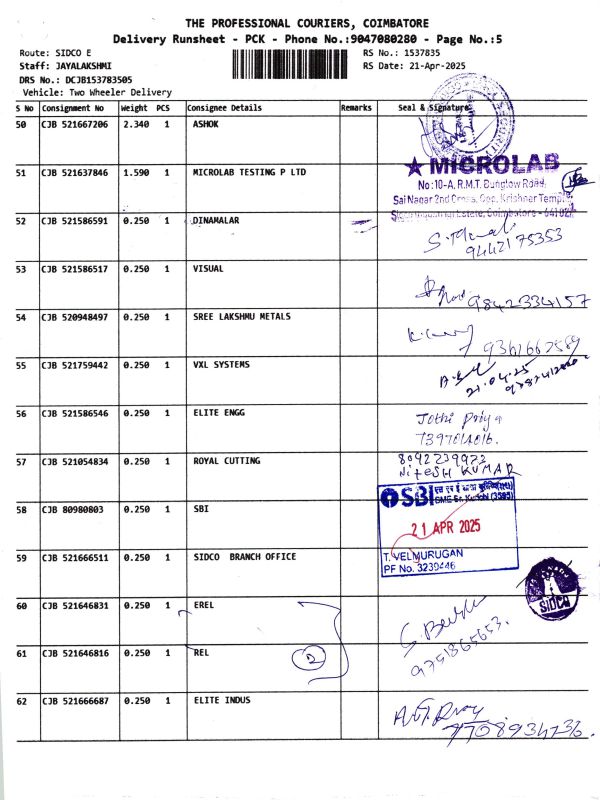 THE PROFESSIONAL COURIERS, COIMBATORE
Delivery Runsheet - PCK - Phone No.:9047080280 - Page No.:5
Route: SIDCO E RS No.: 1537835
Staff: JAYALAKSHMI RS Date: 21-Apr-2025
DRS No.: DCJB153783505
Vehicle: Two Wheeler Delivery
S No Consignment No Weight PCS Consignee Details Remarks Seal & Signature
50 CJB 521667206 2.340 1 ASHOK
★ MICROLAB
51 CJB 521637846 1.590 1 MICROLAB TESTING P LTD
No:10-A, R.M.T. Bunglow Road,
Sai Nagar 2nd Cross, Opp. Krishner Temple,
Sidco Industrial Estate, Coimbatore - 641021
52 CJB 521586591 0.250 1 DINAMALAR
9442175353
53 CJB 521586517 0.250 1 VISUAL
9842334157
54 CJB 520948497 0.250 1 SREE LAKSHMU METALS
9361662589
55 CJB 521759442 0.250 1 VXL SYSTEMS
21.04.25
56 CJB 521586546 0.250 1 ELITE ENGG
Jothi Priya
7397014016.
57 CJB 521054834 0.250 1 ROYAL CUTTING
8092239972
NITESH KUMAR
58 CJB 80980803 0.250 1 SBI
SBI
21 APR 2025
T. VELMURUGAN
PF No. 3239446
59 CJB 521666511 0.250 1 SIDCO BRANCH OFFICE
SIDCO
60 CJB 521646831 0.250 1 EREL
9751865653.
61 CJB 521646816 0.250 1 REL
2
62 CJB 521666687 0.250 1 ELITE INDUS
7708934736.